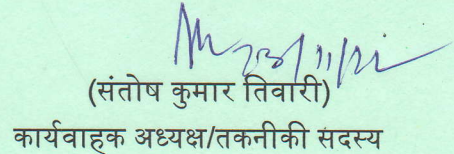 23/11/21
(संतोष कुमार तिवारी)
कार्यवाहक अध्यक्ष/तकनीकी सदस्य